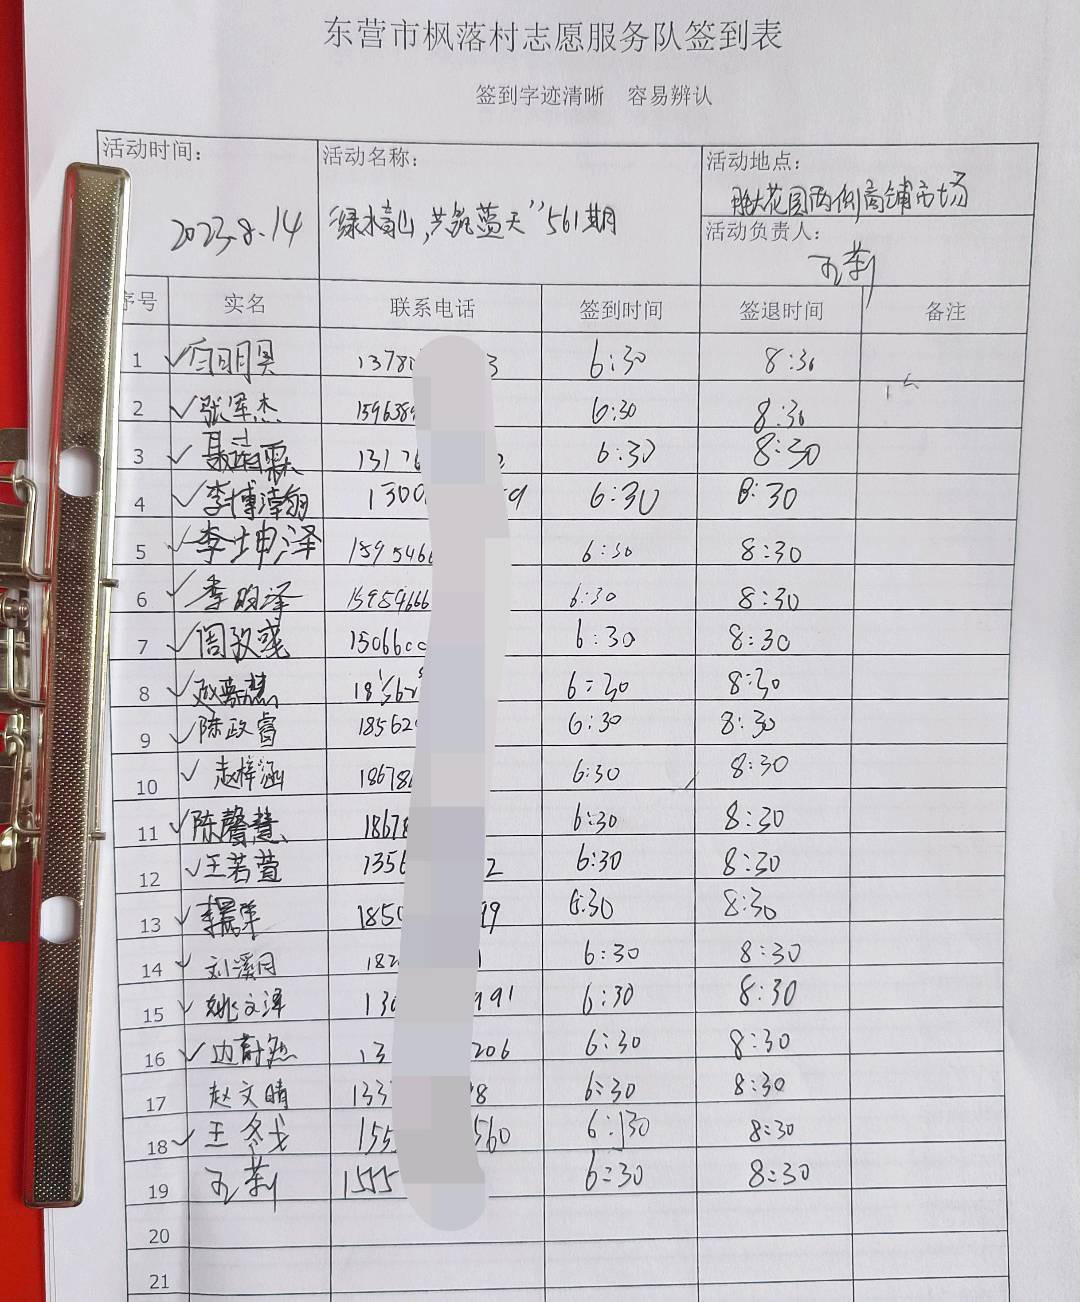 东营市枫落村志愿服务队签到表
签到字迹清晰 容易辨认
活动时间: 2023.8.14
活动名称: “绿水青山,共筑蓝天”561期
活动地点: 花园两侧商铺市场
活动负责人:
序号 实名 联系电话 签到时间 签退时间 备注
1 ✓ 白明具 1378 3 6:30 8:30
2 ✓ 张军杰 159638 6:30 8:30
3 ✓ 1317 6:30 8:30
4 ✓ 李博瀚 1300 9 6:30 8:30
5 ✓ 李坤泽 1595466 6:30 8:30
6 ✓ 李昀泽 15954666 6:30 8:30
7 ✓ 周玫彧 150660 6:30 8:30
8 ✓ 赵慧 18 6:30 8:30
9 ✓ 陈政睿 18562 6:30 8:30
10 ✓ 赵梓涵 18678 6:30 8:30
11 ✓ 陈馨慧 1867 6:30 8:30
12 ✓ 王若萱 1356 2 6:30 8:30
13 ✓ 1850 99 6:30 8:30
14 ✓ 刘溪月 182 6:30 8:30
15 ✓ 姚文泽 130 991 6:30 8:30
16 ✓ 边 13 206 6:30 8:30
17 赵文晴 133 8 6:30 8:30
18 ✓ 王冬戈 155 560 6:30 8:30
19 1555 6:30 8:30
20
21